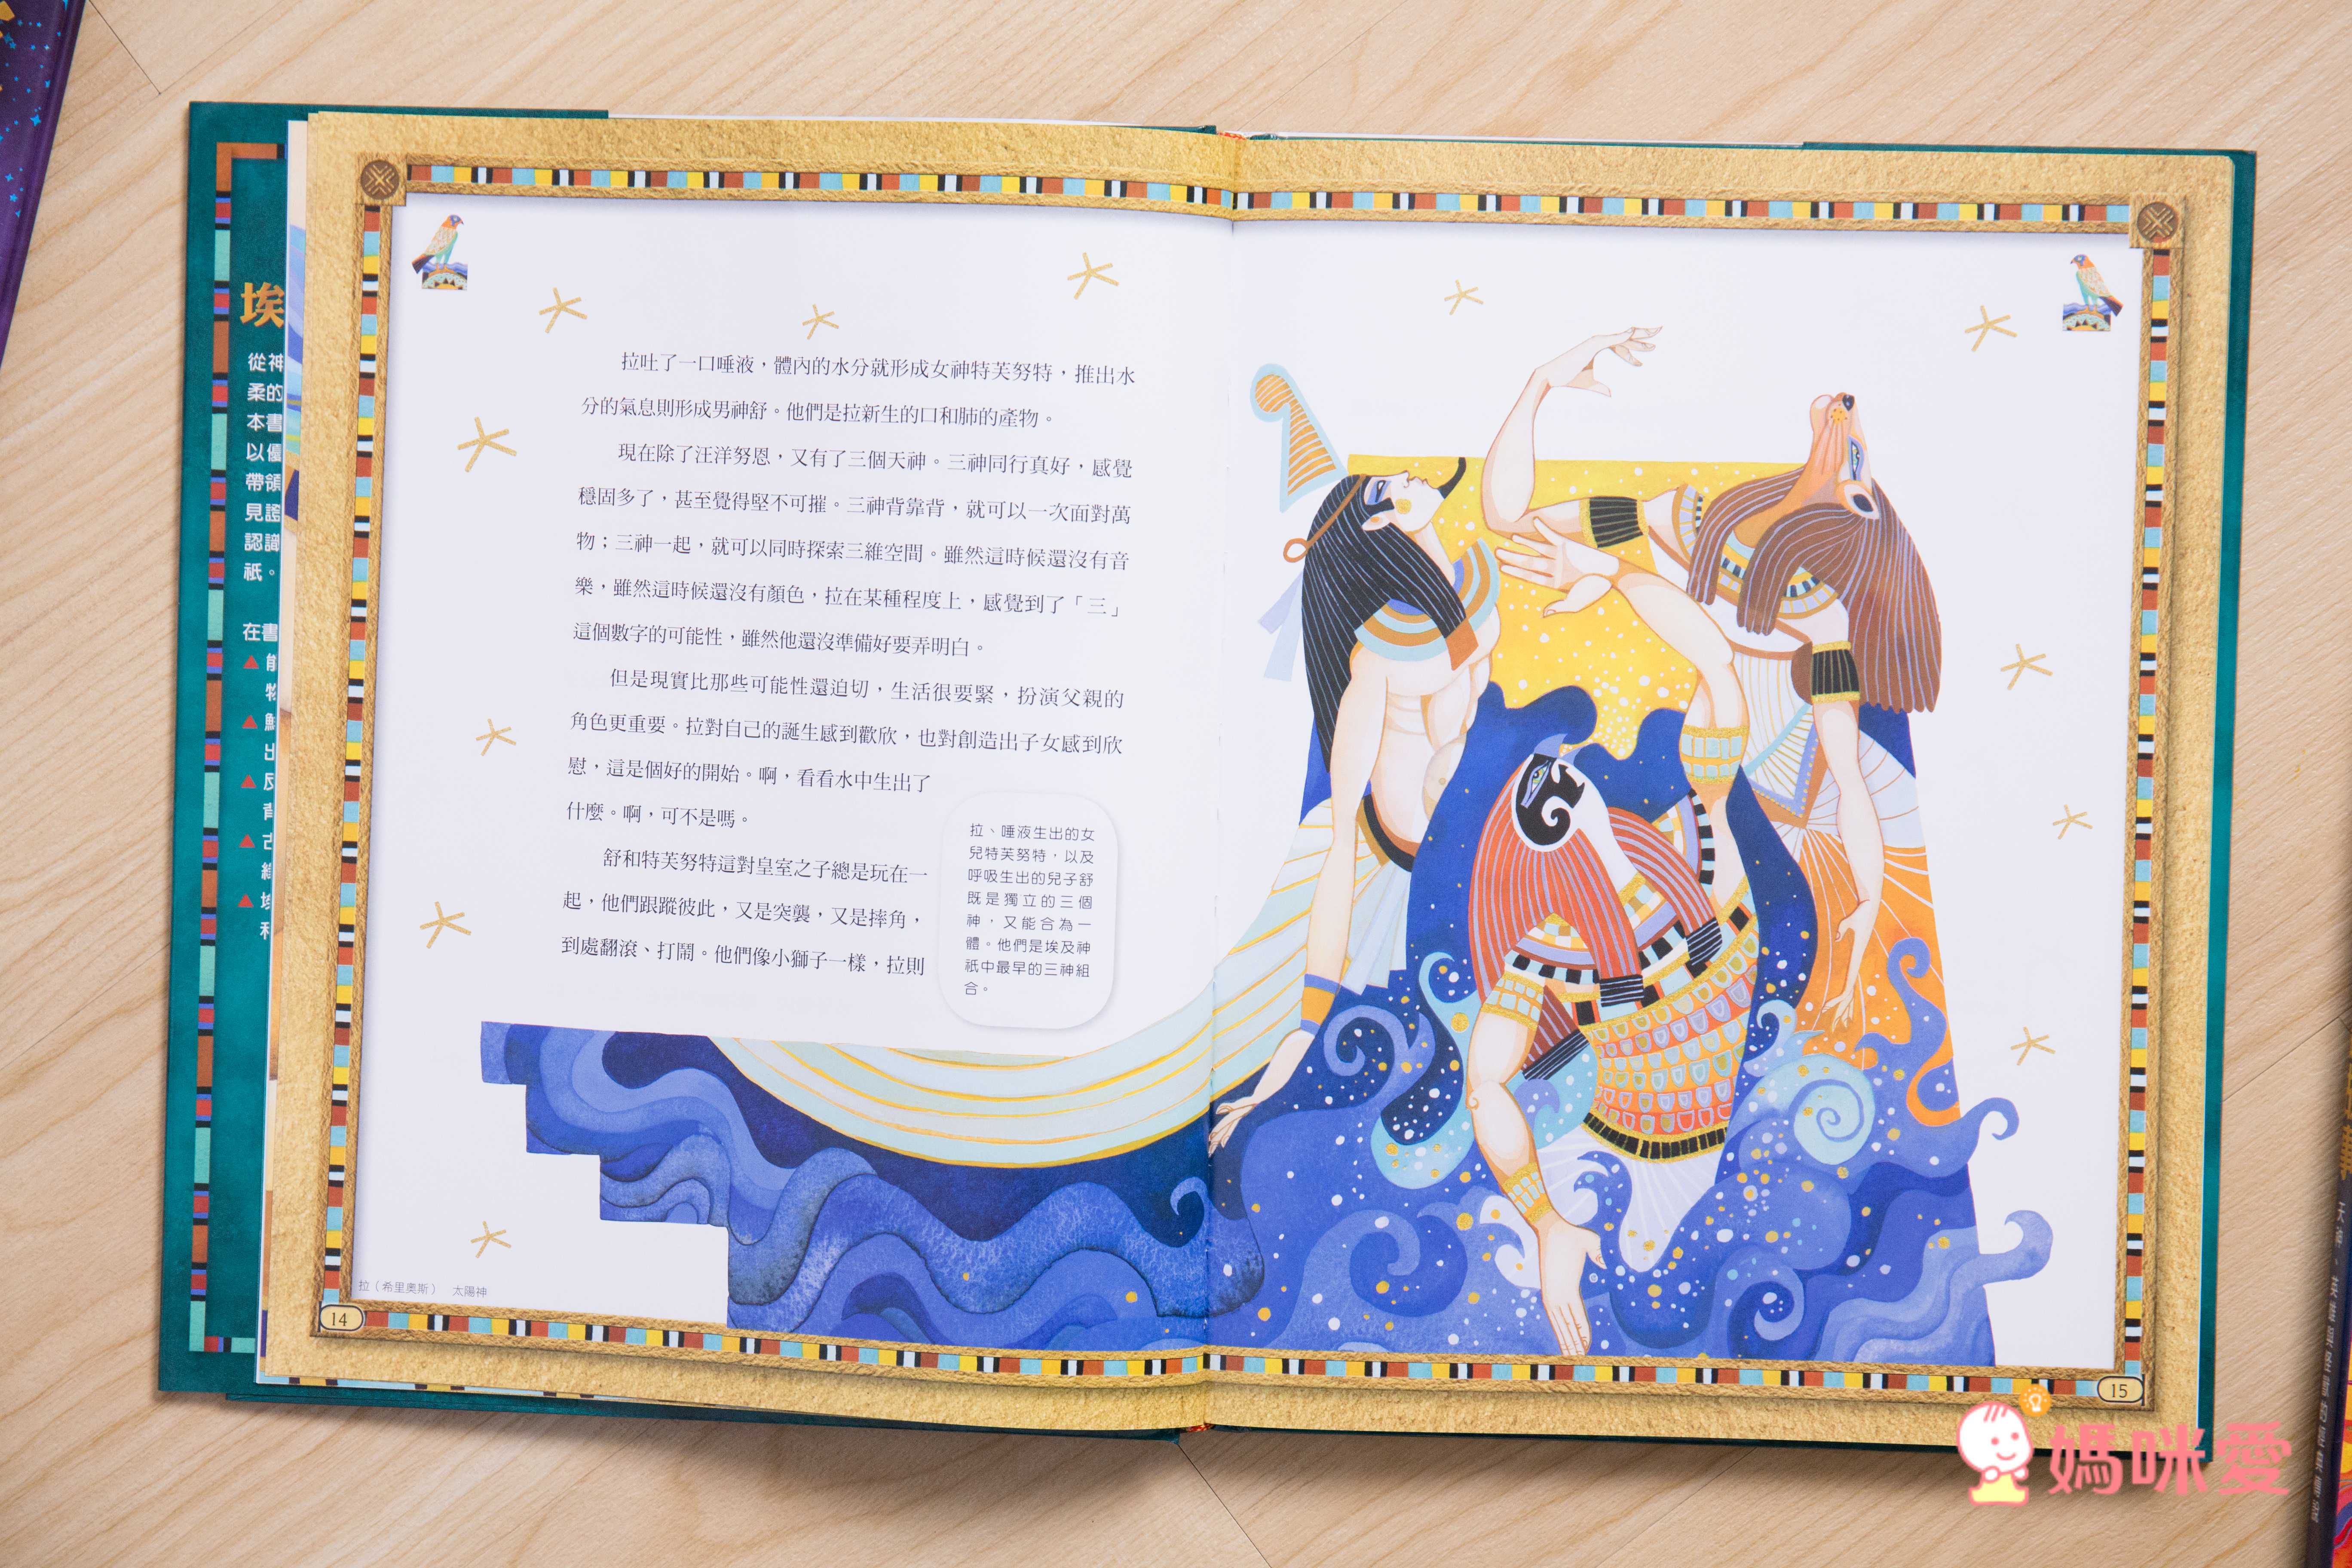 埃
從神
柔的
本書
以優
帶領
見證
認識
祇。
在書
拉吐了一口唾液，體內的水分就形成女神特芙努特，推出水
分的氣息則形成男神舒。他們是拉新生的口和肺的產物。
現在除了汪洋努恩，又有了三個天神。三神同行真好，感覺
穩固多了，甚至覺得堅不可摧。三神背靠背，就可以一次面對萬
物；三神一起，就可以同時探索三維空間。雖然這時候還沒有音
樂，雖然這時候還沒有顏色，拉在某種程度上，感覺到了「三」
這個數字的可能性，雖然他還沒準備好要弄明白。
但是現實比那些可能性還迫切，生活很要緊，扮演父親的
角色更重要。拉對自己的誕生感到歡欣，也對創造出子女感到欣
慰，這是個好的開始。啊，看看水中生出了
什麼。啊，可不是嗎。
舒和特芙努特這對皇室之子總是玩在一
起，他們跟蹤彼此，又是突襲，又是摔角，
到處翻滾、打鬧。他們像小獅子一樣，拉則
拉、唾液生出的女
兒特芙努特，以及
呼吸生出的兒子舒
既是獨立的三個
神，又能合為一
體。他們是埃及神
祇中最早的三神組
合。
拉（希里奧斯） 太陽神
14
15
媽咪愛